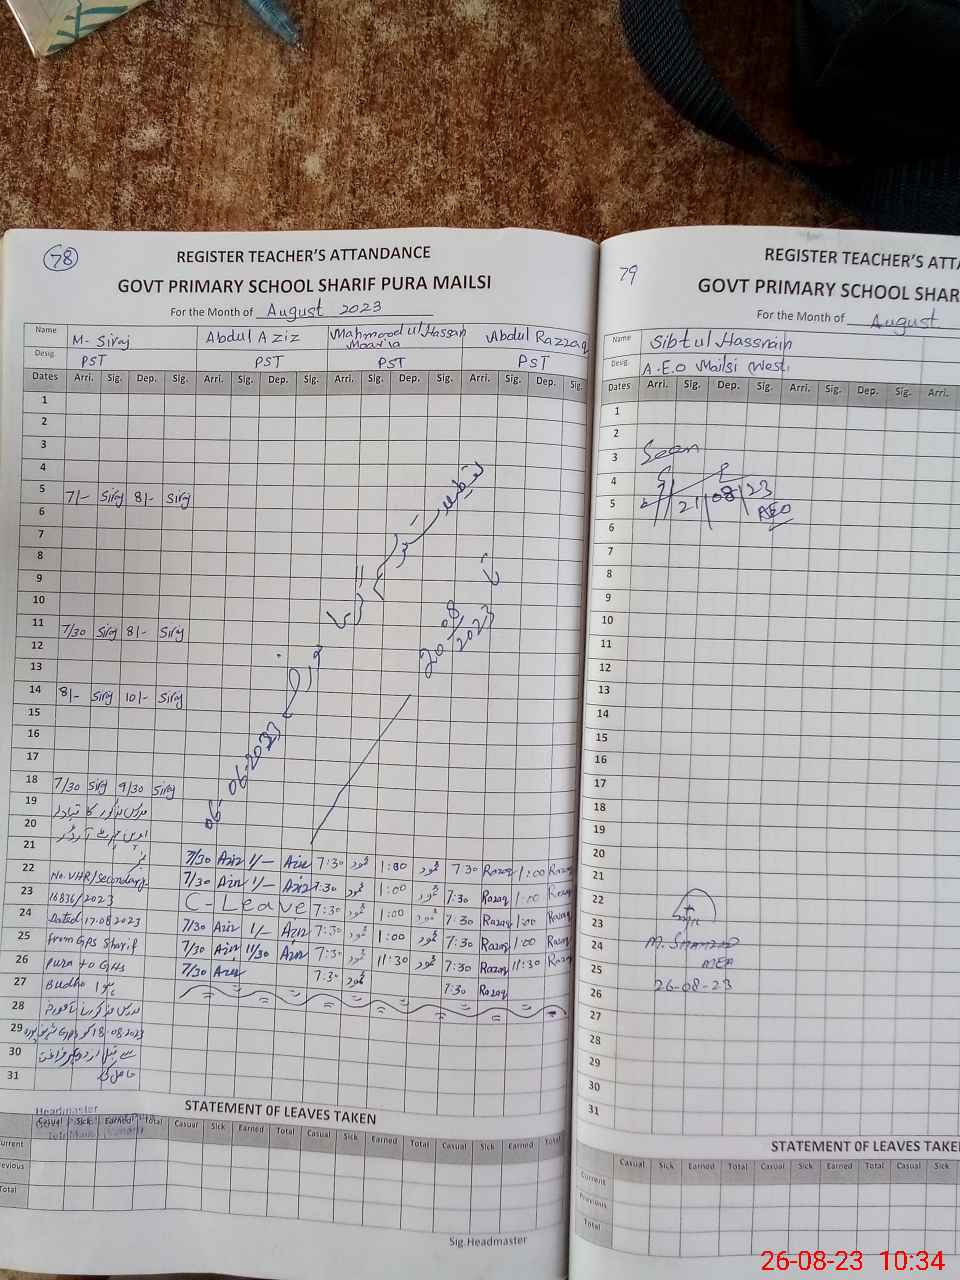 78
REGISTER TEACHER'S ATTANDANCE
GOVT PRIMARY SCHOOL SHARIF PURA MAILSI
For the Month of August 2023
Name M- Siraj Abdul Aziz Mahmood ul Hassan Abdul Razzaq
Desig. PST PST PST PST
Dates Arri. Sig. Dep. Sig. Arri. Sig. Dep. Sig. Arri. Sig. Dep. Sig. Arri. Sig. Dep. Sig.
1
2
3
4
5 7/- Siraj 8/- Siraj
6
7
8
9
10
11 7/30 Siraj 8/- Siraj
12
13
14 8/- Siraj 10/- Siraj
15
16
17
18 7/30 Siraj 9/30 Siraj
19
20
21 7/30 Aziz 1/- Aziz 7:30 محمود 1:00 محمود 7:30 Razaq 1:00 Razaq
22 No. VHR/Secondary 7/30 Aziz 1/- Aziz 7:30 محمود 1:00 محمود 7:30 Razaq 1:00 Razaq
23 16836/2023 C-Leave 7:30 محمود 1:00 محمود 7:30 Razaq 1:00 Razaq
24 Dated 17.08.2023 7/30 Aziz 1/- Aziz 7:30 محمود 1:00 محمود 7:30 Razaq 1:00 Razaq
25 from GPS Sharif 7/30 Aziz 11/30 Aziz 7:30 محمود 11:30 محمود 7:30 Razaq 11:30 Razaq
26 Pura to GHS 7/30 Aziz 7:30 محمود 7:30 Razaq
27 Budho
28
29 18.08.2023
30
31
موسم گرما
تعطیلات
06-06-2023
تا
20/08/2023
Headmaster
STATEMENT OF LEAVES TAKEN
Casual Sick Earned Total Casual Sick Earned Total Casual Sick Earned Total Casual Sick Earned Total
Current
Previous
Total
Sig.Headmaster
79
REGISTER TEACHER'S ATTA
GOVT PRIMARY SCHOOL SHAR
For the Month of August
Name Sibtul Hassnain
Desig. A.E.O Mailsi West
Dates Arri. Sig. Dep. Sig. Arri. Sig. Dep. Sig. Arri.
1
2
3 Seen
4
5 21/08/23
AEO
6
7
8
9
10
11
12
13
14
15
16
17
18
19
20
21
22
23
24 M. Shahzad
25 MEA
26 26-08-23
27
28
29
30
31
STATEMENT OF LEAVES TAKE
Casual Sick Earned Total Casual Sick Earned Total Casual Sick
Current
Previous
Total
26-08-23 10:34